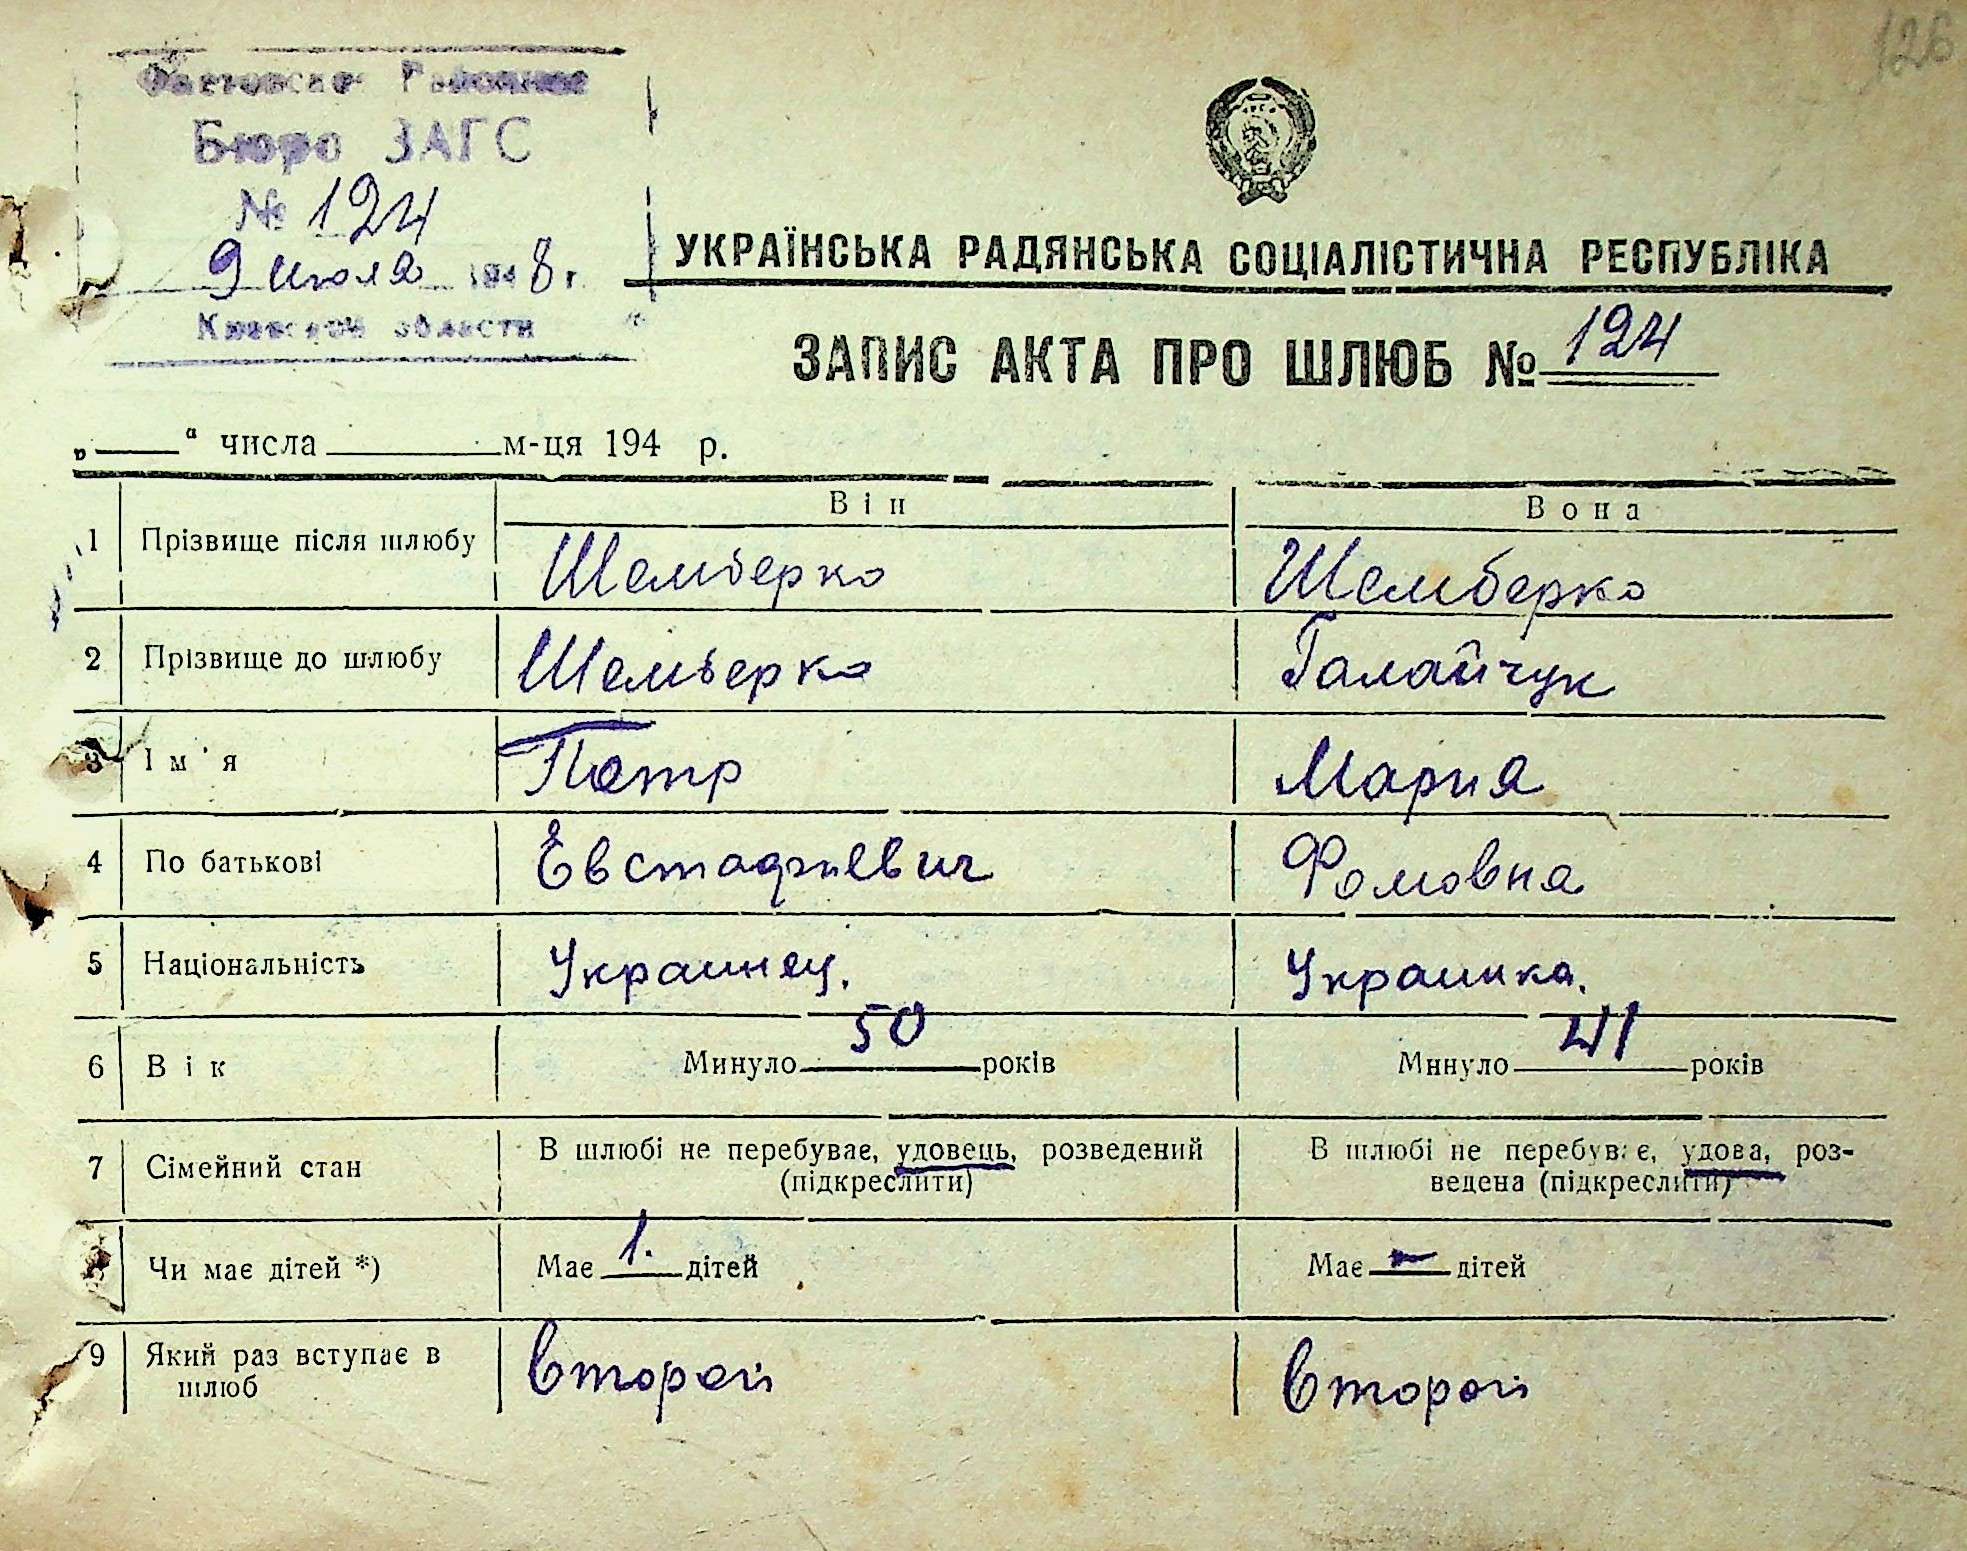 126
Фастовское Районное
Бюро ЗАГС
№ 124
9 июля 1948 г.
Киевской области
УКРАЇНСЬКА РАДЯНСЬКА СОЦІАЛІСТИЧНА РЕСПУБЛІКА
ЗАПИС АКТА ПРО ШЛЮБ № 124
„ “ числа м-ця 194 р.
Він Вона
1 Прізвище після шлюбу Шемберко Шемберко
2 Прізвище до шлюбу Шемберко Галайчук
3 Ім'я Петр Мария
4 По батькові Евстафиевич Фомовна
5 Національність Украинец. Украинка.
6 Вік Минуло 50 років Минуло 41 років
7 Сімейний стан В шлюбі не перебуває, удовець, розведений (підкреслити) В шлюбі не перебуває, удова, роз-
ведена (підкреслити)
8 Чи має дітей *) Має 1. дітей Має — дітей
9 Який раз вступає в шлюб второй второй